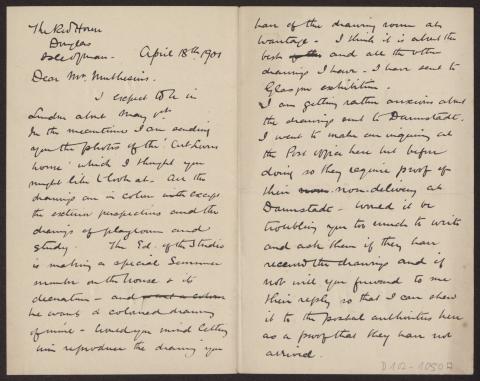 The Red House
Douglas
Isle of Man.
April 18th 1901
Dear Mr. Muthesius.
I expect to be in
London about May 1st.
In the meantime I am sending
you the photos of the 'Art Lovers
house' which I thought you
might like to look at. All the
drawings are in color with except
the exterior perspectives and the
drawings of playroom and
study. The Ed. of the Studio
is making a special Summer
number on the house & its
decoration - and
he wants a coloured drawing
of mine - Would you mind letting
him reproduce the drawing you
have of the drawing room at
Wantage - I think it is about the
best and all the other
drawings I have - I have sent to
Glasgow exhibition.
I am getting rather anxious about
the drawings sent to Darmstadt.
I went to make an inquiry at
the Post office here but before
doing so they require proof of
their non-delivery at
Darmstadt - Would it be
troubling you too much to write
and ask them if they have
received the drawings and if
not will you forward to me
their reply so that I can show
it to the postal authorities here
as a proof that they have not
arrived.
D 102-10507